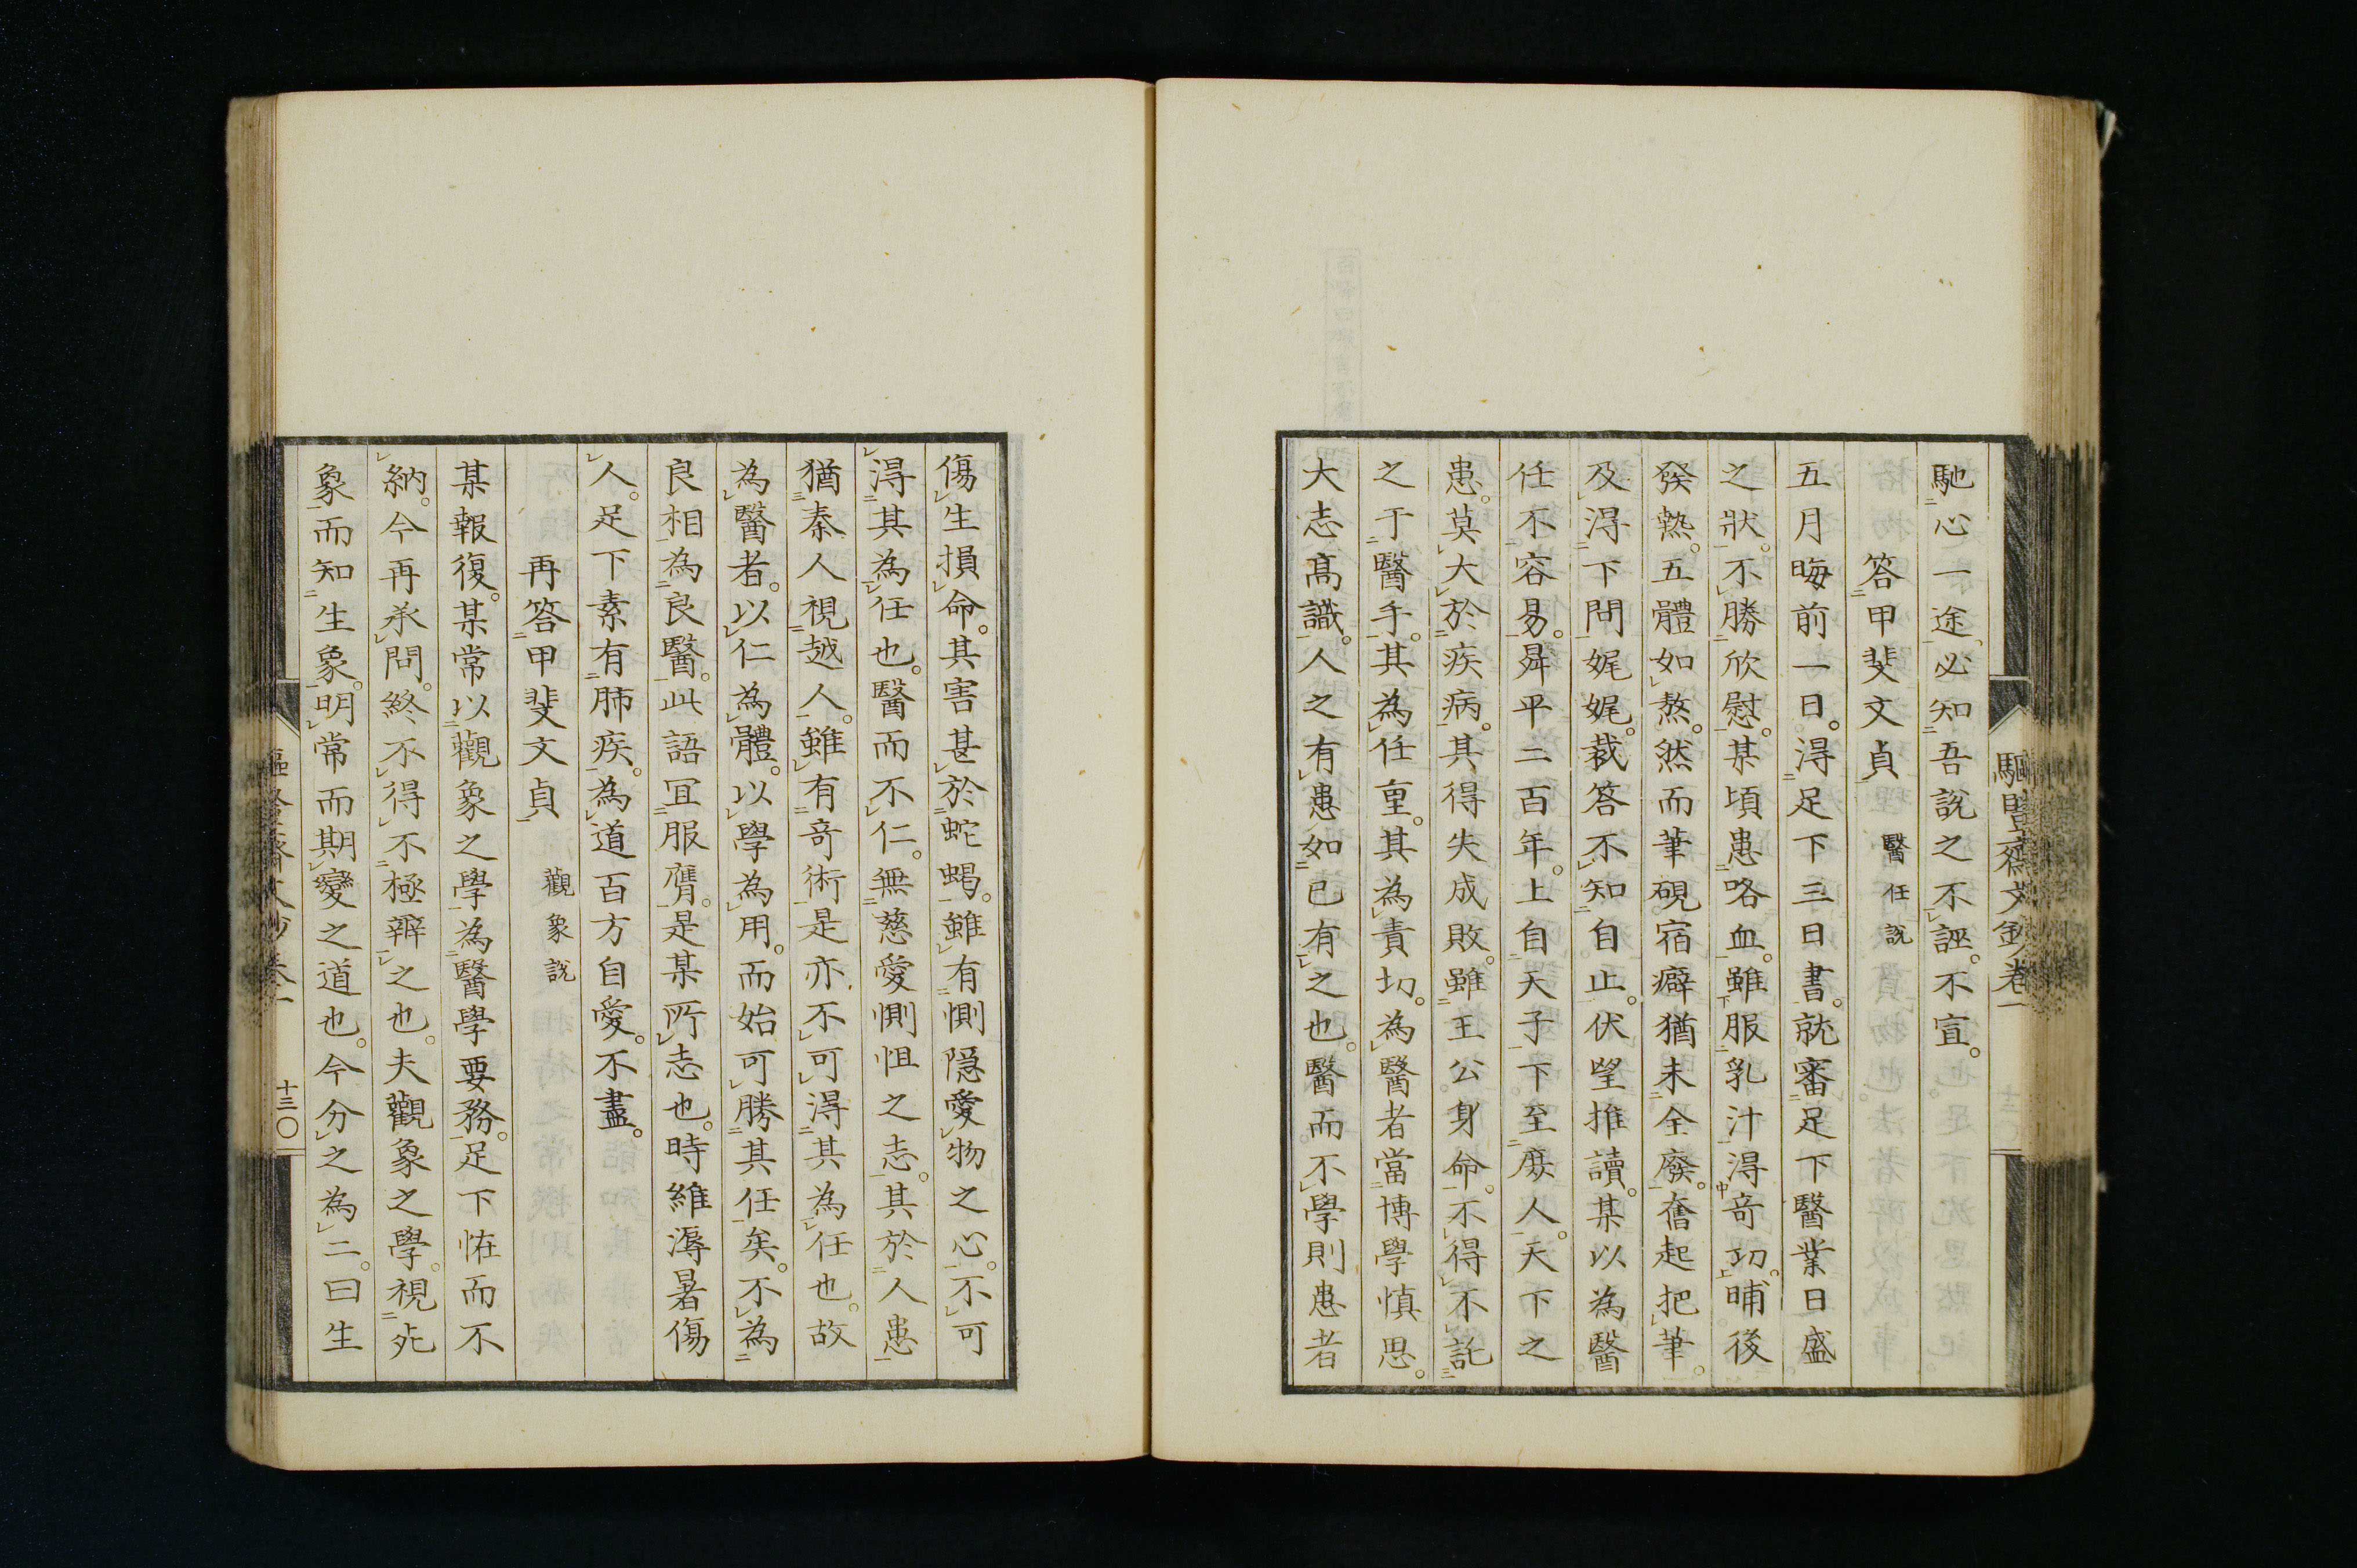 馳心一途、必知吾說之不誣。不宣。
答甲斐文貞 醫任說
五月晦前一日。得足下三日書。就審足下醫業日盛
之狀。不勝欣慰。某頃患咯血。雖服乳汁得奇功。晡後
發熱。五體如熬。然而筆硯宿癖猶未全廢。奮起把筆。
及得下問娓娓。裁答不知自止。伏望推讀。某以為醫
任不容易。昇平二百年。上自天子下至庶人。天下之
患。莫大於疾病。其得失成敗。雖王公身命。不得不託
之于醫手。其為任重。其為責切。為醫者當博學慎思。
大志高識。人之有患如已有之也。醫而不學則患者
傷生損命。其害甚於蛇蝎。雖有惻隱愛物之心。不可
得其為任也。醫而不仁。無慈愛惻怛之志。其於人患
猶秦人視越人。雖有奇術是亦不可得其為任也。故
為醫者。以仁為體。以學為用。而始可勝其任矣。不為
良相為良醫。此語冝服膺。是某所志也。時維溽暑傷
人。足下素有肺疾。為道百方自愛。不盡。
再答甲斐文貞 觀象說
某報復。某常以觀象之學為醫學要務。足下恠而不
納。今再承問。終不得不極辯之也。夫觀象之學。視死
象而知生象。明常而期變之道也。今分之為二。曰生
驅豎齋文鈔卷一
十三